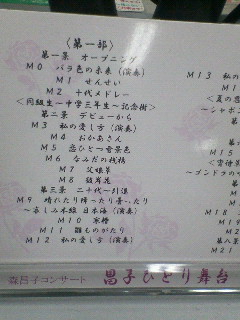 〈第一部〉
第一景 オープニング
M0 バラ色の未来(演奏)
M1 せんせい
M2 十代メドレー
<同級生〜中学三年生〜記念樹>
第二景 デビューから
M3 私の愛し方(演奏)
M4 おかあさん
M5 恋ひとつ雪景色
M6 なみだの桟橋
M7 父娘草
M8
第三景 二十代〜
M9 晴れたり降ったり曇ったり
〜哀しみ本線 日本海(演奏)
M10 寒椿
M11 雛ものがたり
M12 私の愛し方(演奏)
M13 私の
<夏の
〜シャボ
M1
M1
M1
<
〜ゴンドラの
M18
M
M2
M21
第八景
M
森昌子コンサート 昌子ひとり舞台